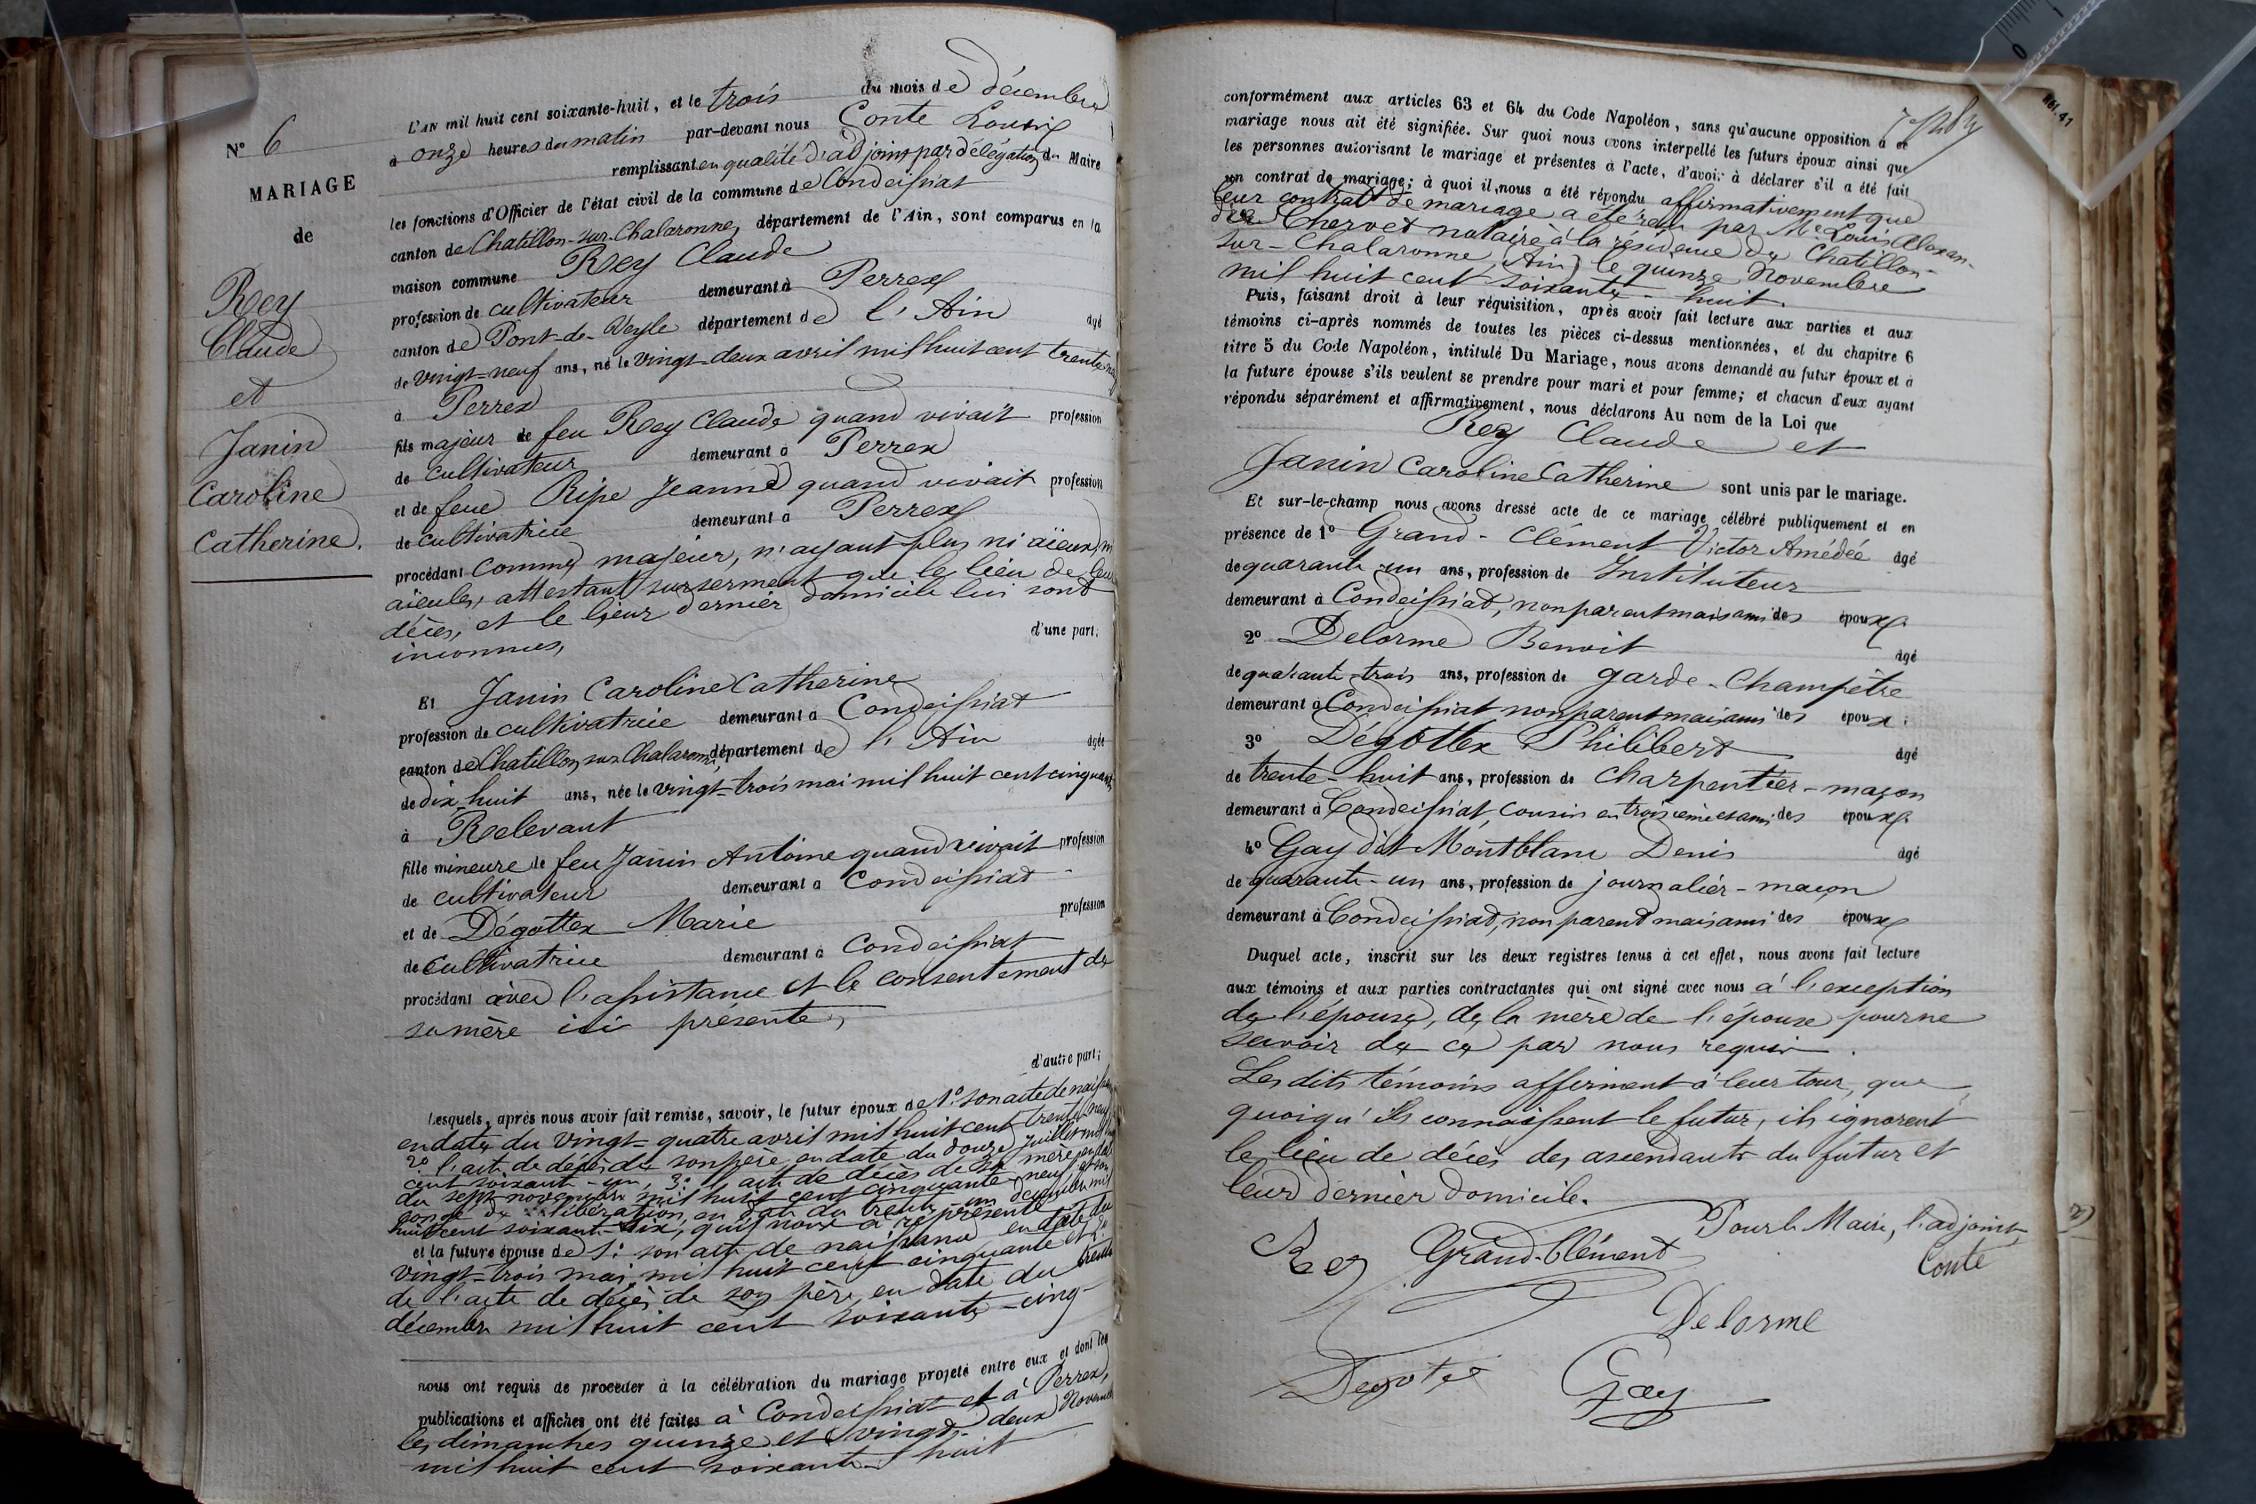 N° 6
MARIAGE
de
Rey
Claude
et
Janin
Caroline
Catherine.
L'AN mil huit cent soixante-huit, et le trois du mois de décembre
à onze heures du matin par-devant nous Conte Louis
remplissant en qualité d'adjoint par délégation du Maire
les fonctions d'Officier de l'état civil de la commune de Condeissiat
canton de Chatillon-sur-Chalaronne, département de l'Ain, sont comparus en la
maison commune Rey Claude
profession de cultivateur demeurant à Perrex
canton de Pont-de-Veyle département de l'Ain âgé
de vingt-neuf ans, né le vingt-deux avril mil huit cent trente neuf
à Perrex
fils majeur de feu Rey Claude quand vivait profession
de cultivateur demeurant à Perrex
et de feue Ripe Jeanne quand vivait profession
de cultivatrice demeurant à Perrex
procédant comme majeur, n'ayant plus ni aïeux, ni
aïeules, attestant sur serment que le lieu de leur
décès, et le lieur dernier domicile lui sont
inconnus, d'une part;
Et Janin Caroline Catherine
profession de cultivatrice demeurant à Condeissiat
canton de Chatillon sur Chalaronne, département de l'Ain âgée
de dix-huit ans, née le vingt-trois mai mil huit cent cinquante
à Relevant
fille mineure de feu Janin Antoine quand vivait profession
de cultivateur demeurant à Condeissiat
et de Dégottex Marie profession
de cultivatrice demeurant à Condeissiat
procédant avec l'assistance et le consentement de
sa mère ici présente,
d'autre part;
Lesquels, après nous avoir fait remise, savoir, le futur époux de 1° son acte de naissance
en date du vingt-quatre avril mil huit cent trente neuf
2° l'acte de décès de son père en date du douze juillet mil huit
cent soixante-un, 3° l'acte de décès de sa mère en date
du sept novembre mil huit cent cinquante-neuf et son
congé de libération, en date du trente-un décembre mil
huit cent soixante-six, qu'il nous a représenté
et la future épouse de 1° son acte de naissance en date du
vingt-trois mai mil huit cent cinquante et 2°
de l'acte de décès de son père, en date du trente
décembre mil huit cent soixante-cinq
nous ont requis de procéder à la célébration du mariage projeté entre eux et dont les
publications et affiches ont été faites à Condeissiat et à Perrex,
les dimanches quinze et vingt-deux Novembre
mil huit cent soixante-huit
conformément aux articles 63 et 64 du Code Napoléon, sans qu'aucune opposition à ce
mariage nous ait été signifiée. Sur quoi nous avons interpellé les futurs époux ainsi que
les personnes autorisant le mariage et présentes à l'acte, d'avoir à déclarer s'il a été fait
un contrat de mariage; à quoi il nous a été répondu affirmativement que
leur contrat de mariage a été reçu par Me Louis Alexan-
dre Chervet notaire à la résidence de Chatillon-
sur-Chalaronne, (Ain) le quinze Novembre
mil huit cent soixante-huit.
Puis, faisant droit à leur réquisition, après avoir fait lecture aux parties et aux
témoins ci-après nommés de toutes les pièces ci-dessus mentionnées, et du chapitre 6
titre 5 du Code Napoléon, intitulé Du Mariage, nous avons demandé au futur époux et à
la future épouse s'ils veulent se prendre pour mari et pour femme; et chacun d'eux ayant
répondu séparément et affirmativement, nous déclarons Au nom de la Loi que
Rey Claude et
Janin Caroline Catherine sont unis par le mariage.
Et sur-le-champ nous avons dressé acte de ce mariage célébré publiquement et en
présence de 1° Grand-Clément Victor Amédée âgé
de quarante un ans, profession de Instituteur
demeurant à Condeissiat, non parent mais ami des époux
2° Delorme Benoit âgé
de quarante-trois ans, profession de garde-Champêtre
demeurant à Condeissiat non parent mais ami des époux;
3° Dégottex Philibert âgé
de trente-huit ans, profession de charpentier-maçon
demeurant à Condeissiat, cousin en troisième et ami des époux
4° Gay dit Montblanc Denis âgé
de quarante-un ans, profession de journalier-maçon
demeurant à Condeissiat, non parent mais ami des époux
Duquel acte, inscrit sur les deux registres tenus à cet effet, nous avons fait lecture
aux témoins et aux parties contractantes qui ont signé avec nous à l'exception
de l'épouse, de la mère de l'épouse pour ne
savoir de ce par nous requis.
Les dits témoins affirment à leur tour, que
quoiqu'ils connaissent le futur, ils ignorent
le lieu de décès des ascendants du futur et
leur dernier domicile.
Pour le Maire, l'adjoint,
Conte
Rey Grand-Clément
Delorme
Degotex Gay